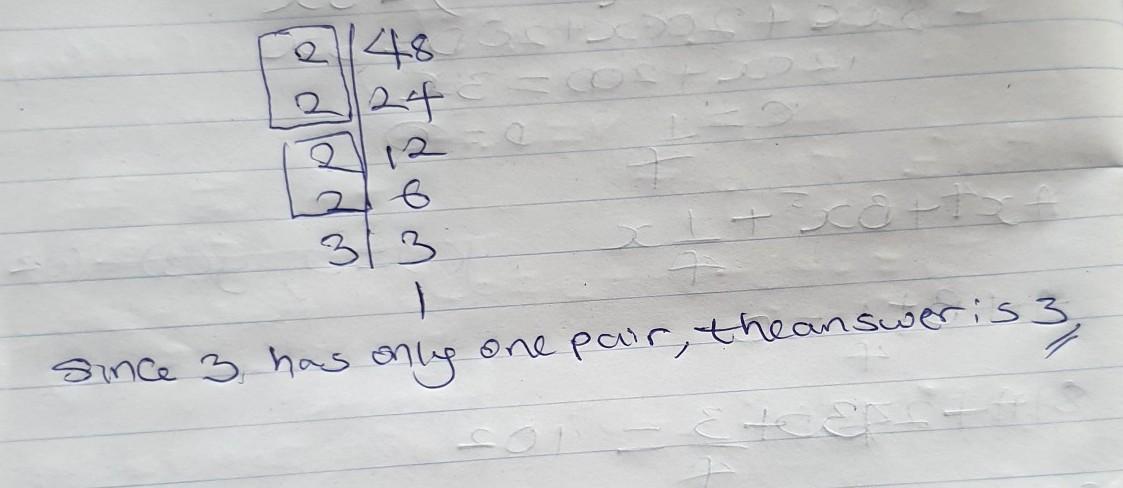 2 | 48
2 | 24
2 | 12
2 | 6
3 | 3
1
Since 3 has only one pair, the answer is 3